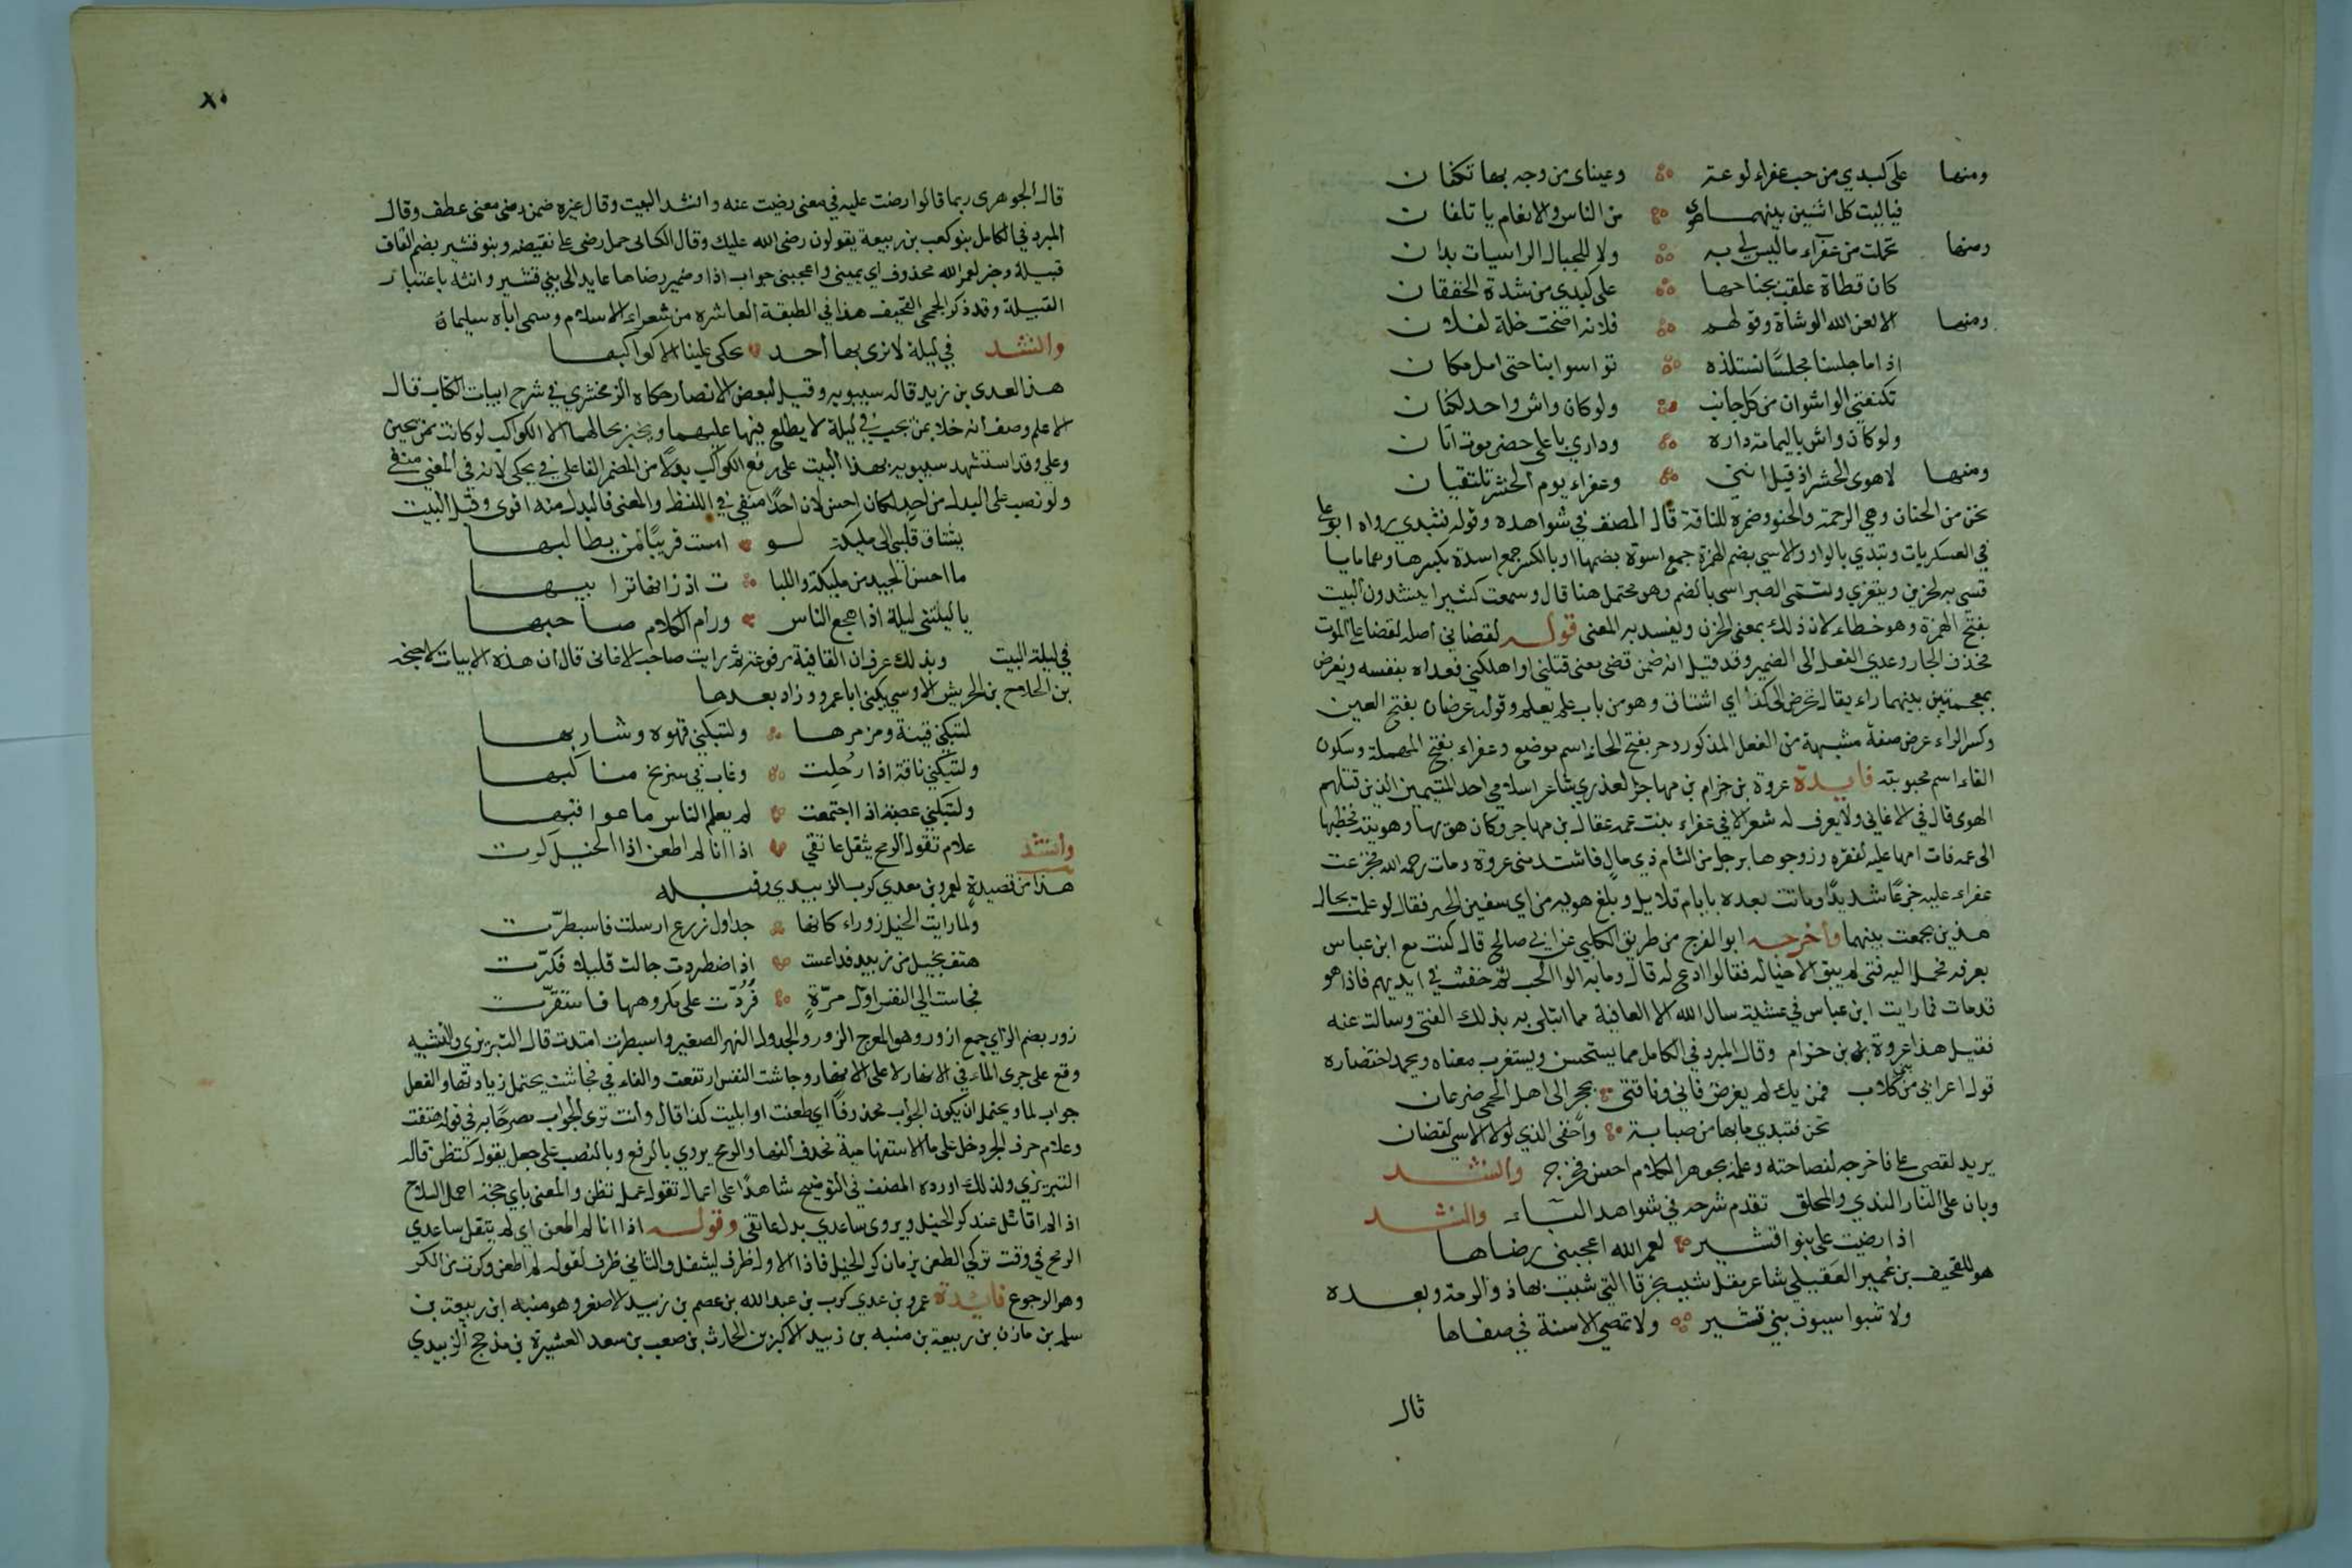 ومنها على كبدي من حب عفراء لوعة وعيناي من وجد بها تكفان
فياليت كل اثنين بينهما هوى من الناس والانعام يا تلفان
ومنها تحملت من عفراء ما ليس لي به ولا للجبال الراسيات يدان
كان قطاة علقت بجناحها على كبدي من شدة الخفقان
ومنها الا لعن الله الوشاة وقولهم فلانة اضحت خلة لفلان
اذا ما جلسنا مجلسا نستلذه تواسوا بنا حتى امل مكان
تكنفني الواشون من كل جانب ولو كان واش واحد لكفان
ولو كان واش باليمامة داره وداري باعلى حضرموت اتان
ومنها لاهوى الحشر اذ قيل انني وعفراء يوم الحشر نلتقيان
تحن من الحنان وهي الرحمة والحنو وضمره للناقة قال المصنف في شواهده وقوله فتبدي رواه ابو علي
في العسكريات وتبدي بالواو والاسي بضم الهمزة جمع اسوة بضمها او بالكسر جمع اسدة بكسرها وهما ما يا
تسي به الحزين ويتعزي وتسمى الصبر اسى بالضم وهو محتمل هنا قال وسمعت كثيرا ينشدون البيت
بفتح الهمزة وهو خطاء لان ذلك بمعنى الحزن ويفسد به المعنى قوله لقضاني اصله لقضا علي الموت
فحذف الجار وعدي الفعل الى الضمير وقد قيل انه ضمن قضى معنى قتلني او اهلكني فعداه بنفسه ويغرض
بمعجمتين بينهما راء يقال غرض الى كذا اي اشتاق وهو من باب علم يعلم وقوله غرضان بفتح العين
وكسر الراء غرض صفة مشبهة من الفعل المذكور وحر بفتح الحاء اسم موضع وعفراء بفتح المهملة وسكون
الفاء اسم محبوبته فايدة عروة بن حزام بن مهاجر العذري شاعر اسلامي احد المتيمين الذين قتلهم
الهوى قال في الاغاني ولا يعرف له شعر الا في عفراء بنت عمه عقال بن مهاجر وكان هويها وهويته فخطبها
الى عمه فات امها عليه لفقره وزوجوها برجل من الشام ذي مال فاشتد ضنى عروة ومات رحمه الله فجزعت
عفراء عليه جزعا شديدا وماتت بعده بايام قلايل وبلغ معوية بن ابي سفين الخبر فقال لو علمت بحال
هذين لجمعت بينهما واخرج ابو الفرج من طريق الكلبي عن ابي صالح قال كنت مع ابن عباس
بعرفة فحمل اليه فتى لم يبق الا خياله فقالوا ادع له قال وما به قالوا الحب ثم خفت في ايديهم فاذا هو
قد مات فما رايت ابن عباس في عشيته سال الله الا العافية مما ابتلى به بذلك الفتى وسالت عنه
فقيل هذا عروة بن حزام وقال المبرد في الكامل مما يستحسن ويستغرب معناه ويحمد اختصاره
قول اعرابي من بني كلاب فمن يك لم يغرض فاني وناقتي بحجر الى اهل الحمى غرضان
تحن فتبدي ما بها من صبابة واخفي الذي لولا الاسي لقضان
يريد لقضى علي فاخرجه لفصاحته وعلمه بجوهر الكلام احسن مخرج وانشد
وبات على النار الندي والمحلق تقدم شرحه في شواهد الباء وانشد
اذا رضيت علي بنو اقشير لعمر الله اعجبني رضاها
هو للقحيف بن خمير العقيلي شاعر مقل شبب بخرقا التي شبب بها ذو الرمة وبعده
ولا تنبوا سيوف بني قشير ولا تمضي الاسنة في صفاها
قال
٨٥
قال الجوهري ربما قالوا رضيت عليه في معنى رضيت عنه وانشد البيت وقال غيره ضمن رضي معنى عطف وقال
المبرد في الكامل بنو كعب بن ربيعة يقولون رضى الله عليك وقال الكسائي حمل رضى على نقيضه وبنو قشير بضم القاف
قبيلة وخبر لعمر الله محذوف اي يميني واعجبني جواب اذا وضمير رضاها عايد الى بني قشير وانثه باعتبار
القبيلة وقد ذكر الجمحي القحيف هذا في الطبقة العاشرة من شعراء الاسلام وسمى اباه سليمان
وانشد في ليلة لا نرى بها احد يحكى علينا الا كواكبها
هذا لعدي بن زيد قاله سيبويه وقيل لبعض الانصار حكاه الزمخشري في شرح ابيات الكتاب قال
الاعلم وصف انه خلا بمن يحب في ليلة لا يطلع فيها عليهما ويخبر بحالهما الا الكواكب لو كانت ممن يخبر
وعلي وقد استشهد سيبويه بهذا البيت على رفع الكواكب بدلا من المضمر الفاعل في يحكى لانه في المعنى منفي
ولو نصب على البدل من احد لكان احسن لان احدا منفي في اللفظ والمعنى فالبدل منه اقوى وقبل البيت
يشتاق قلبي الى مليكة لو امست قريبا لمن يطالبها
ما احسن الجيد من مليكة واللبا ت اذ زانها ترا بيها
يا ليتني ليلة اذا هجع الناس ورام الكلام صاحبها
في ليلة البيت وبذلك عرف ان القافية مرفوعة ثم رايت صاحب الاغاني قال ان هذه الابيات لاحيحة
بن الجلاح بن الحريش الاوسي يكنى ابا عمرو وزاد بعدها
لتبكني قينة ومزمرها ولتبكني قهوة وشاربها
ولتبكني ناقة اذا رحلت وغاب في سربخ مناكبها
ولتبكني عصبة اذا اجتمعت لم يعلم الناس ما عواقبها
وانشد علام تقول الرمح يثقل عاتقي اذا انا لم اطعن اذا الخيل كرت
هذا من قصيدة لعمرو بن معدي كرب الزبيدي وقبله
ولما رايت الخيل زورا كانها جداول زرع ارسلت فاسبطرت
هتفت بخيل من زبيد فداعست اذا اضطردت جالت قليلا فكرت
فجاست الي النفس اول مرة فردت على مكروهها فاستقرت
زور بضم الزاي جمع ازور وهو المعوج الزور والجدول النهر الصغير واسبطرت امتدت قال التبريزي والتشبيه
وقع على جري الماء في الانهار لا على الانهار وجاشت النفس ارتفعت والفاء في فجاشت يحتمل زيادتها والفعل
جواب لما ويحتمل ان يكون الجواب محذوفا اي طعنت او ابليت كذا قال وانت ترى الجواب مصرحا به في قوله هتفت
وعلام حرف الجر دخل على ما الاستفهامية فحذف الفها والرمح يروي بالرفع وبالنصب على جعل تقول كتظن قاله
التبريزي ولذلك اورده المصنف في التوضيح شاهدا على اعمال تقول عمل تظن والمعنى باي حجة احمل السلاح
اذا لم اقاتل عند كر الخيل ويروى ساعدي بدل عاتقي وقوله اذا انا لم اطعن اي لم يثقل ساعدي
الرمح في وقت تركي الطعن بزمان كر الخيل فاذا الاول ظرف ليثقل والثاني ظرف لقوله لم اطعن وكرت من الكر
وهو الرجوع فايدة عمرو بن عدي كرب بن عبد الله بن عصم بن زبيد الاصغر وهو منبه ابن ربيعة بن
سلمه بن مازن بن ربيعة بن منبه بن زبيد الاكبر بن الحارث بن صعب بن سعد العشيرة بن مذحج الزبيدي